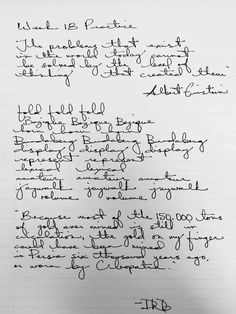 Week 18 Practice
"The problems that exist
in the world today cannot
be solved by the level of
thinking that created them"
Albert Einstein
fold fold fold
Bezique Bezique Bezique
horn horn
Bundberg Bundberg Bundberg
display display display
represent represent
lexical lexical
amateur amateur amateur
jaywalk jaywalk jaywalk
volume volume
"Because most of the 150,000 tons
of gold ever mined is still in
circulation, the gold on my finger
could have been mined
in Persia six thousand years ago,
or worn by Cleopatra."